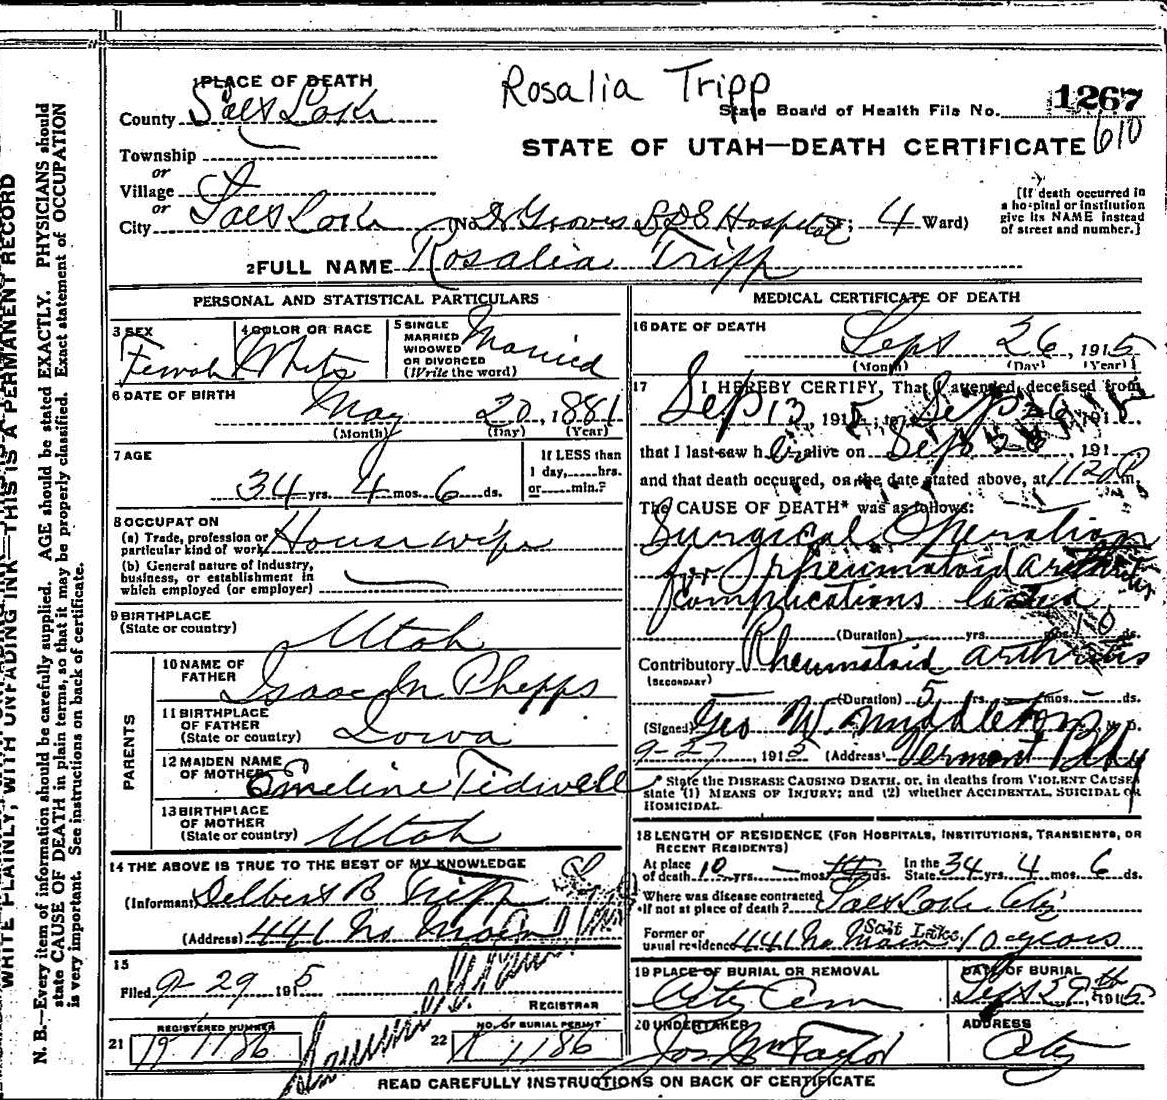 Rosalia Tripp
1 PLACE OF DEATH
County Salt Lake
State Board of Health File No. 1267
610
Township
or
STATE OF UTAH—DEATH CERTIFICATE
Village
or
City Salt Lake (No. Groves LDS Hospital St; 4 Ward)
[If death occurred in
a hospital or institution
give its NAME instead
of street and number.]
2 FULL NAME Rosalia Tripp
PERSONAL AND STATISTICAL PARTICULARS
3 SEX
Female
4 COLOR OR RACE
White
5 SINGLE
MARRIED
WIDOWED
OR DIVORCED
(Write the word)
Married
6 DATE OF BIRTH
May 20, 1881
(Month) (Day) (Year)
7 AGE
34 yrs. 4 mos. 6 ds.
If LESS than
1 day,......hrs.
or......min.?
8 OCCUPATION
(a) Trade, profession or
particular kind of work Housewife
(b) General nature of industry,
business, or establishment in
which employed (or employer)
9 BIRTHPLACE
(State or country) Utah
PARENTS
10 NAME OF
FATHER Isaac M Phepps
11 BIRTHPLACE
OF FATHER
(State or country) Iowa
12 MAIDEN NAME
OF MOTHER Emeline Tidwell
13 BIRTHPLACE
OF MOTHER
(State or country) Utah
14 THE ABOVE IS TRUE TO THE BEST OF MY KNOWLEDGE
(Informant) Delbert B Tripp
(Address) 441 No Main
15
Filed 9-29 1915
REGISTRAR
21 REGISTERED NUMBER
1186
22 NO. OF BURIAL PERMIT
1186
MEDICAL CERTIFICATE OF DEATH
16 DATE OF DEATH
Sept 26, 1915
(Month) (Day) (Year)
17 I HEREBY CERTIFY, That I attended deceased from
Sep 13, 1915, to Sep 26 1915
that I last saw her alive on Sep 26, 191
and that death occurred, on the date stated above, at 1120 P m.
The CAUSE OF DEATH* was as follows:
Surgical Operation
for rheumatoid arthritis
complications
(Duration) yrs. mos. 10 ds.
Contributory Rheumatoid arthritis
(SECONDARY)
(Duration) 5 yrs. mos. ds.
(Signed) Geo W. Middleton M. D.
9-27, 1915 (Address) Vermont Bldg
* State the DISEASE CAUSING DEATH, or, in deaths from VIOLENT CAUSES
state (1) MEANS OF INJURY; and (2) whether ACCIDENTAL, SUICIDAL OR
HOMICIDAL.
18 LENGTH OF RESIDENCE (FOR HOSPITALS, INSTITUTIONS, TRANSIENTS, OR
RECENT RESIDENTS)
At place
of death 10 yrs. mos. ds.
In the
State 34 4 mos. 6 ds.
Where was disease contracted
if not at place of death? Salt Lake City
Former or
usual residence 441 No Main Salt Lake 10 years
19 PLACE OF BURIAL OR REMOVAL
City Cem
DATE OF BURIAL
Sept 29th, 1915
20 UNDERTAKER
Jos Wm Taylor
ADDRESS
City
READ CAREFULLY INSTRUCTIONS ON BACK OF CERTIFICATE
WRITE PLAINLY, WITH UNFADING INK—THIS IS A PERMANENT RECORD
N. B.—Every item of information should be carefully supplied. AGE should be stated EXACTLY. PHYSICIANS should
state CAUSE OF DEATH in plain terms, so that it may be properly classified. Exact statement of OCCUPATION
is very important. See instructions on back of certificate.